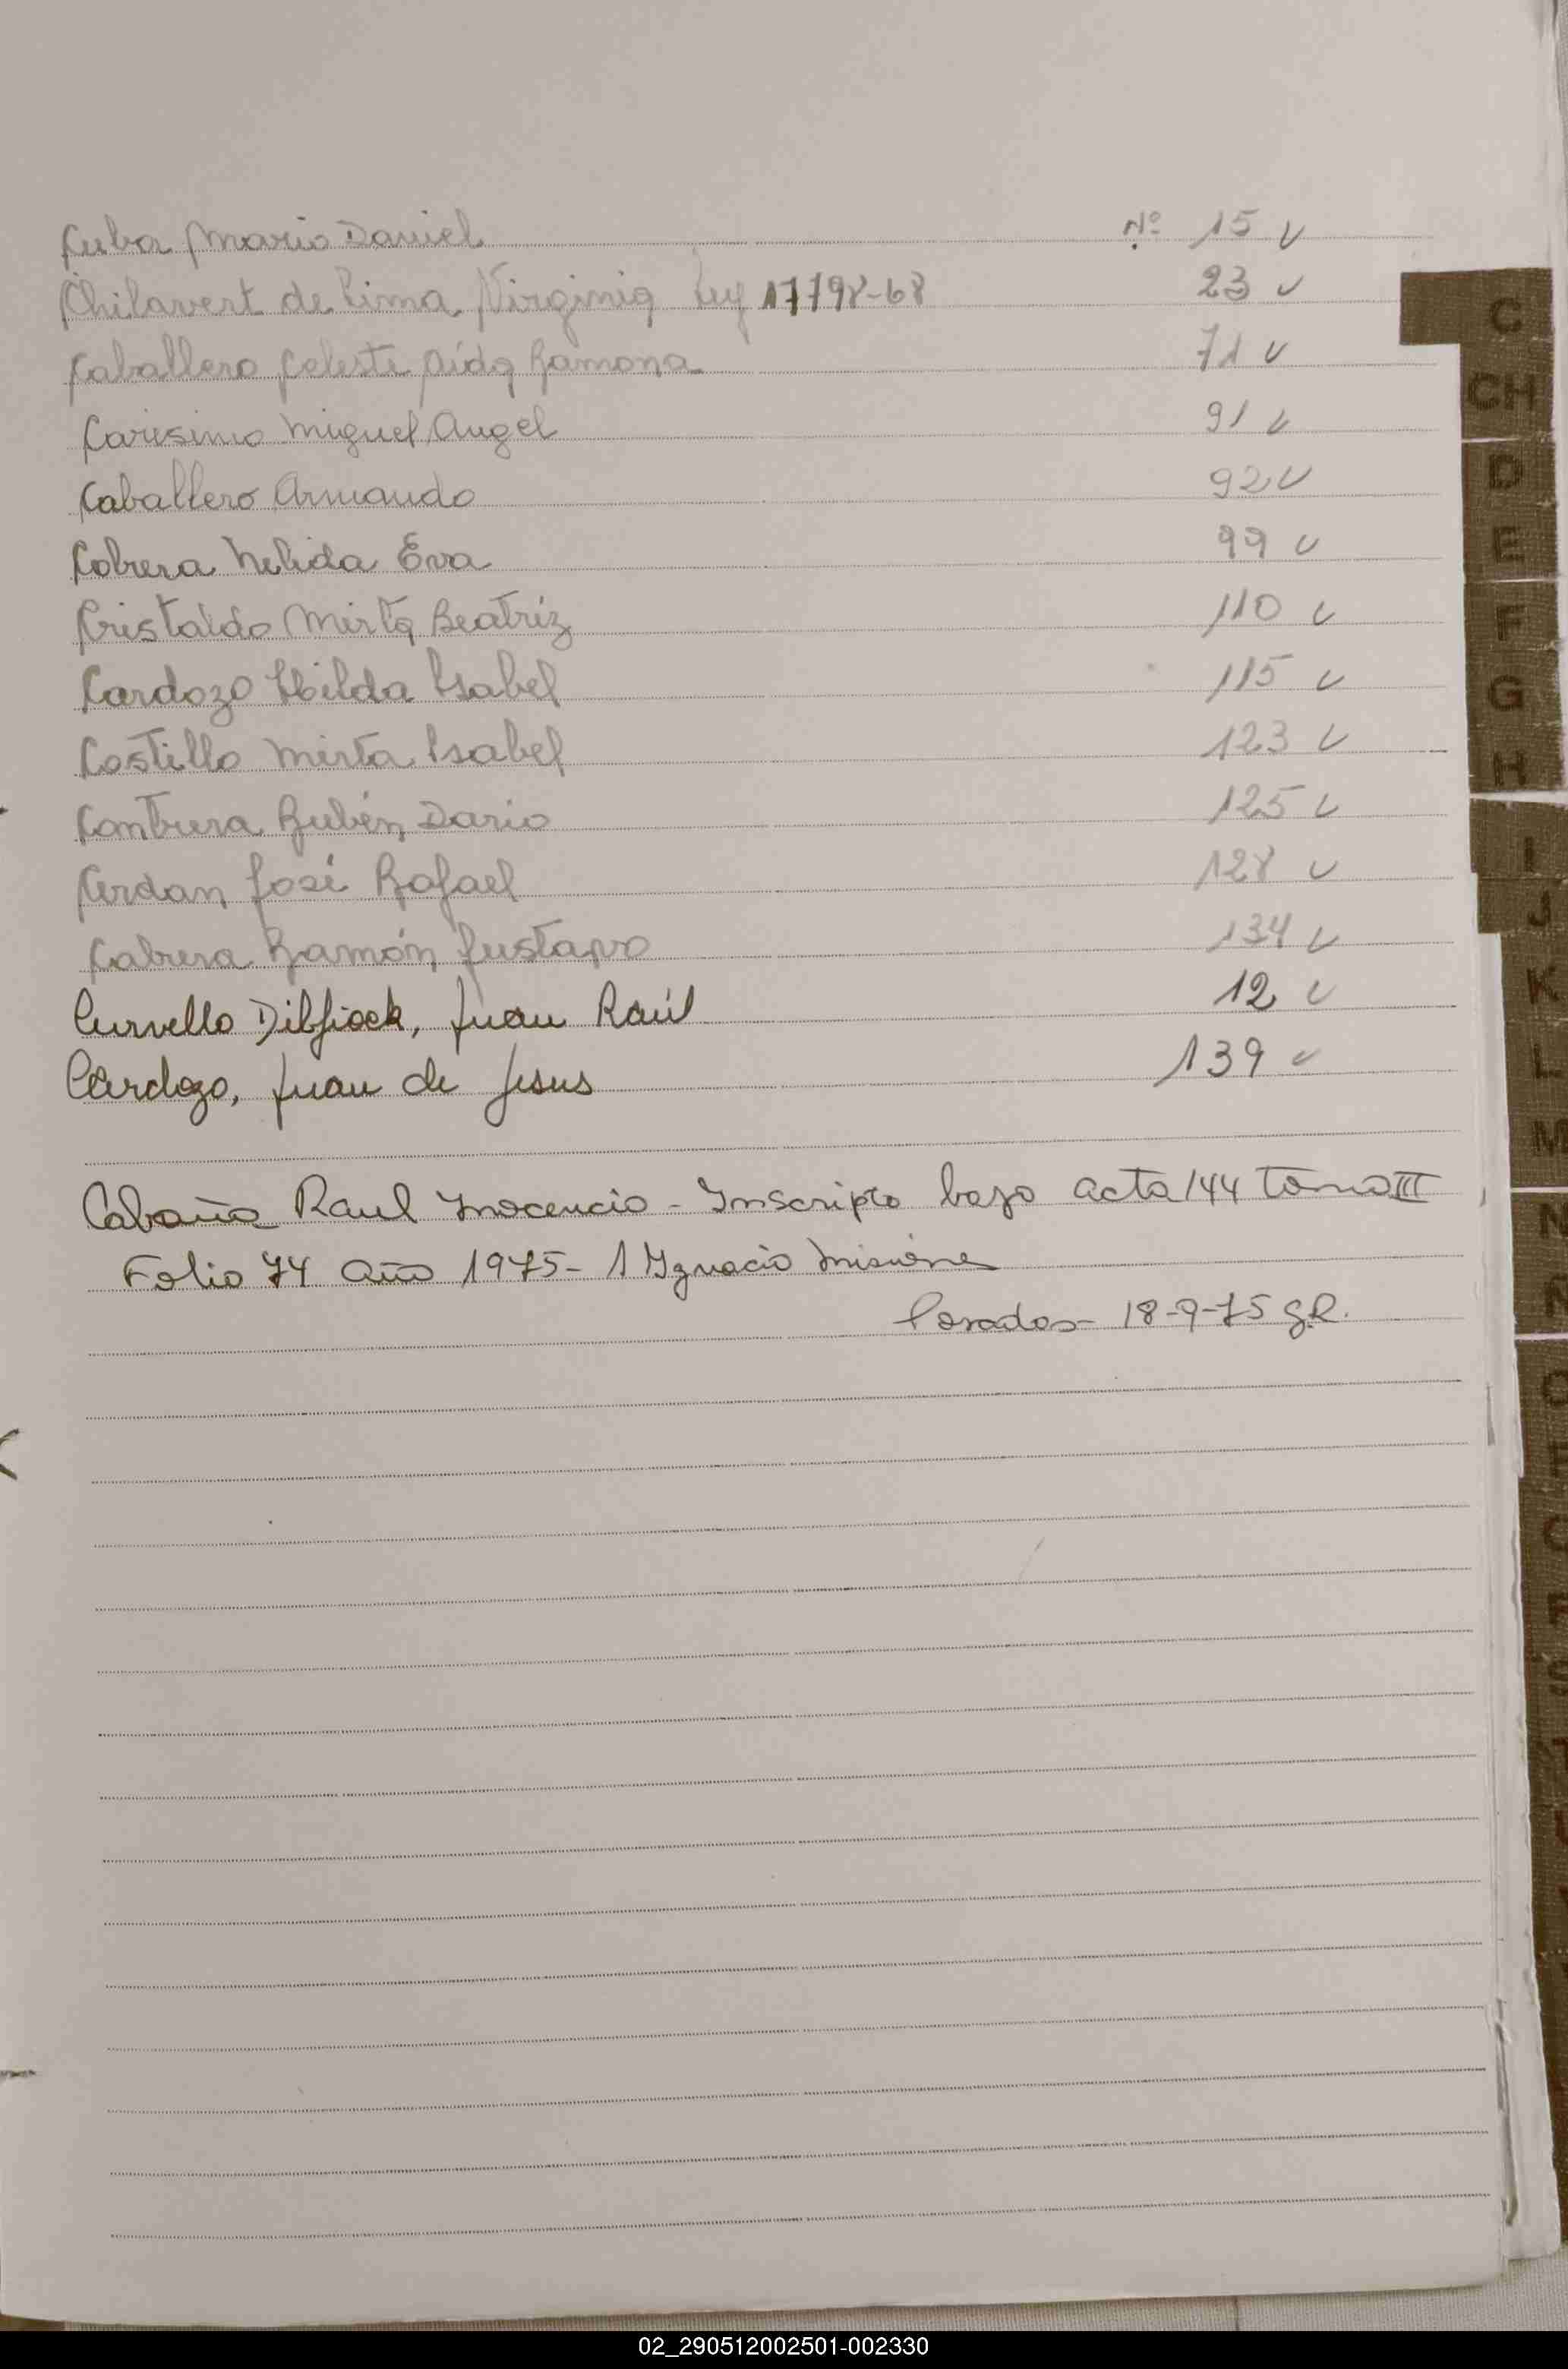 Cuba Mario Daniel Nº 15
Chilavert de Lima Virginia Ley 17798-68 23
Caballero Celeste Aida Ramona 71
Carisimo Miguel Angel 91
Caballero Armando 92
Cabrera Nelida Eva 99
Cristaldo Mirta Beatriz 110
Cardozo Hilda Isabel 115
Castillo Mirta Isabel 123
Contrera Rubén Dario 125
Cerdan José Rafael 128
Cabrera Ramón Gustavo 134
Curvello Juan Raúl 12
Cardozo, Juan de Jesus 139
Cabaña Raul Inocencio - Inscripto bajo acta 144 Tomo III
Folio 74 año 1975 - Ignacio Misiones
Posadas - 18-9-75 G.R.
C
CH
D
E
F
G
H
I
J
K
L
M
N
Ñ
02_290512002501-002330